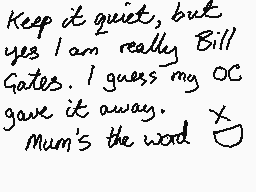 Keep it quiet, but
yes I am really Bill
Gates. I guess my OC
gave it away.
Mum's the word XD